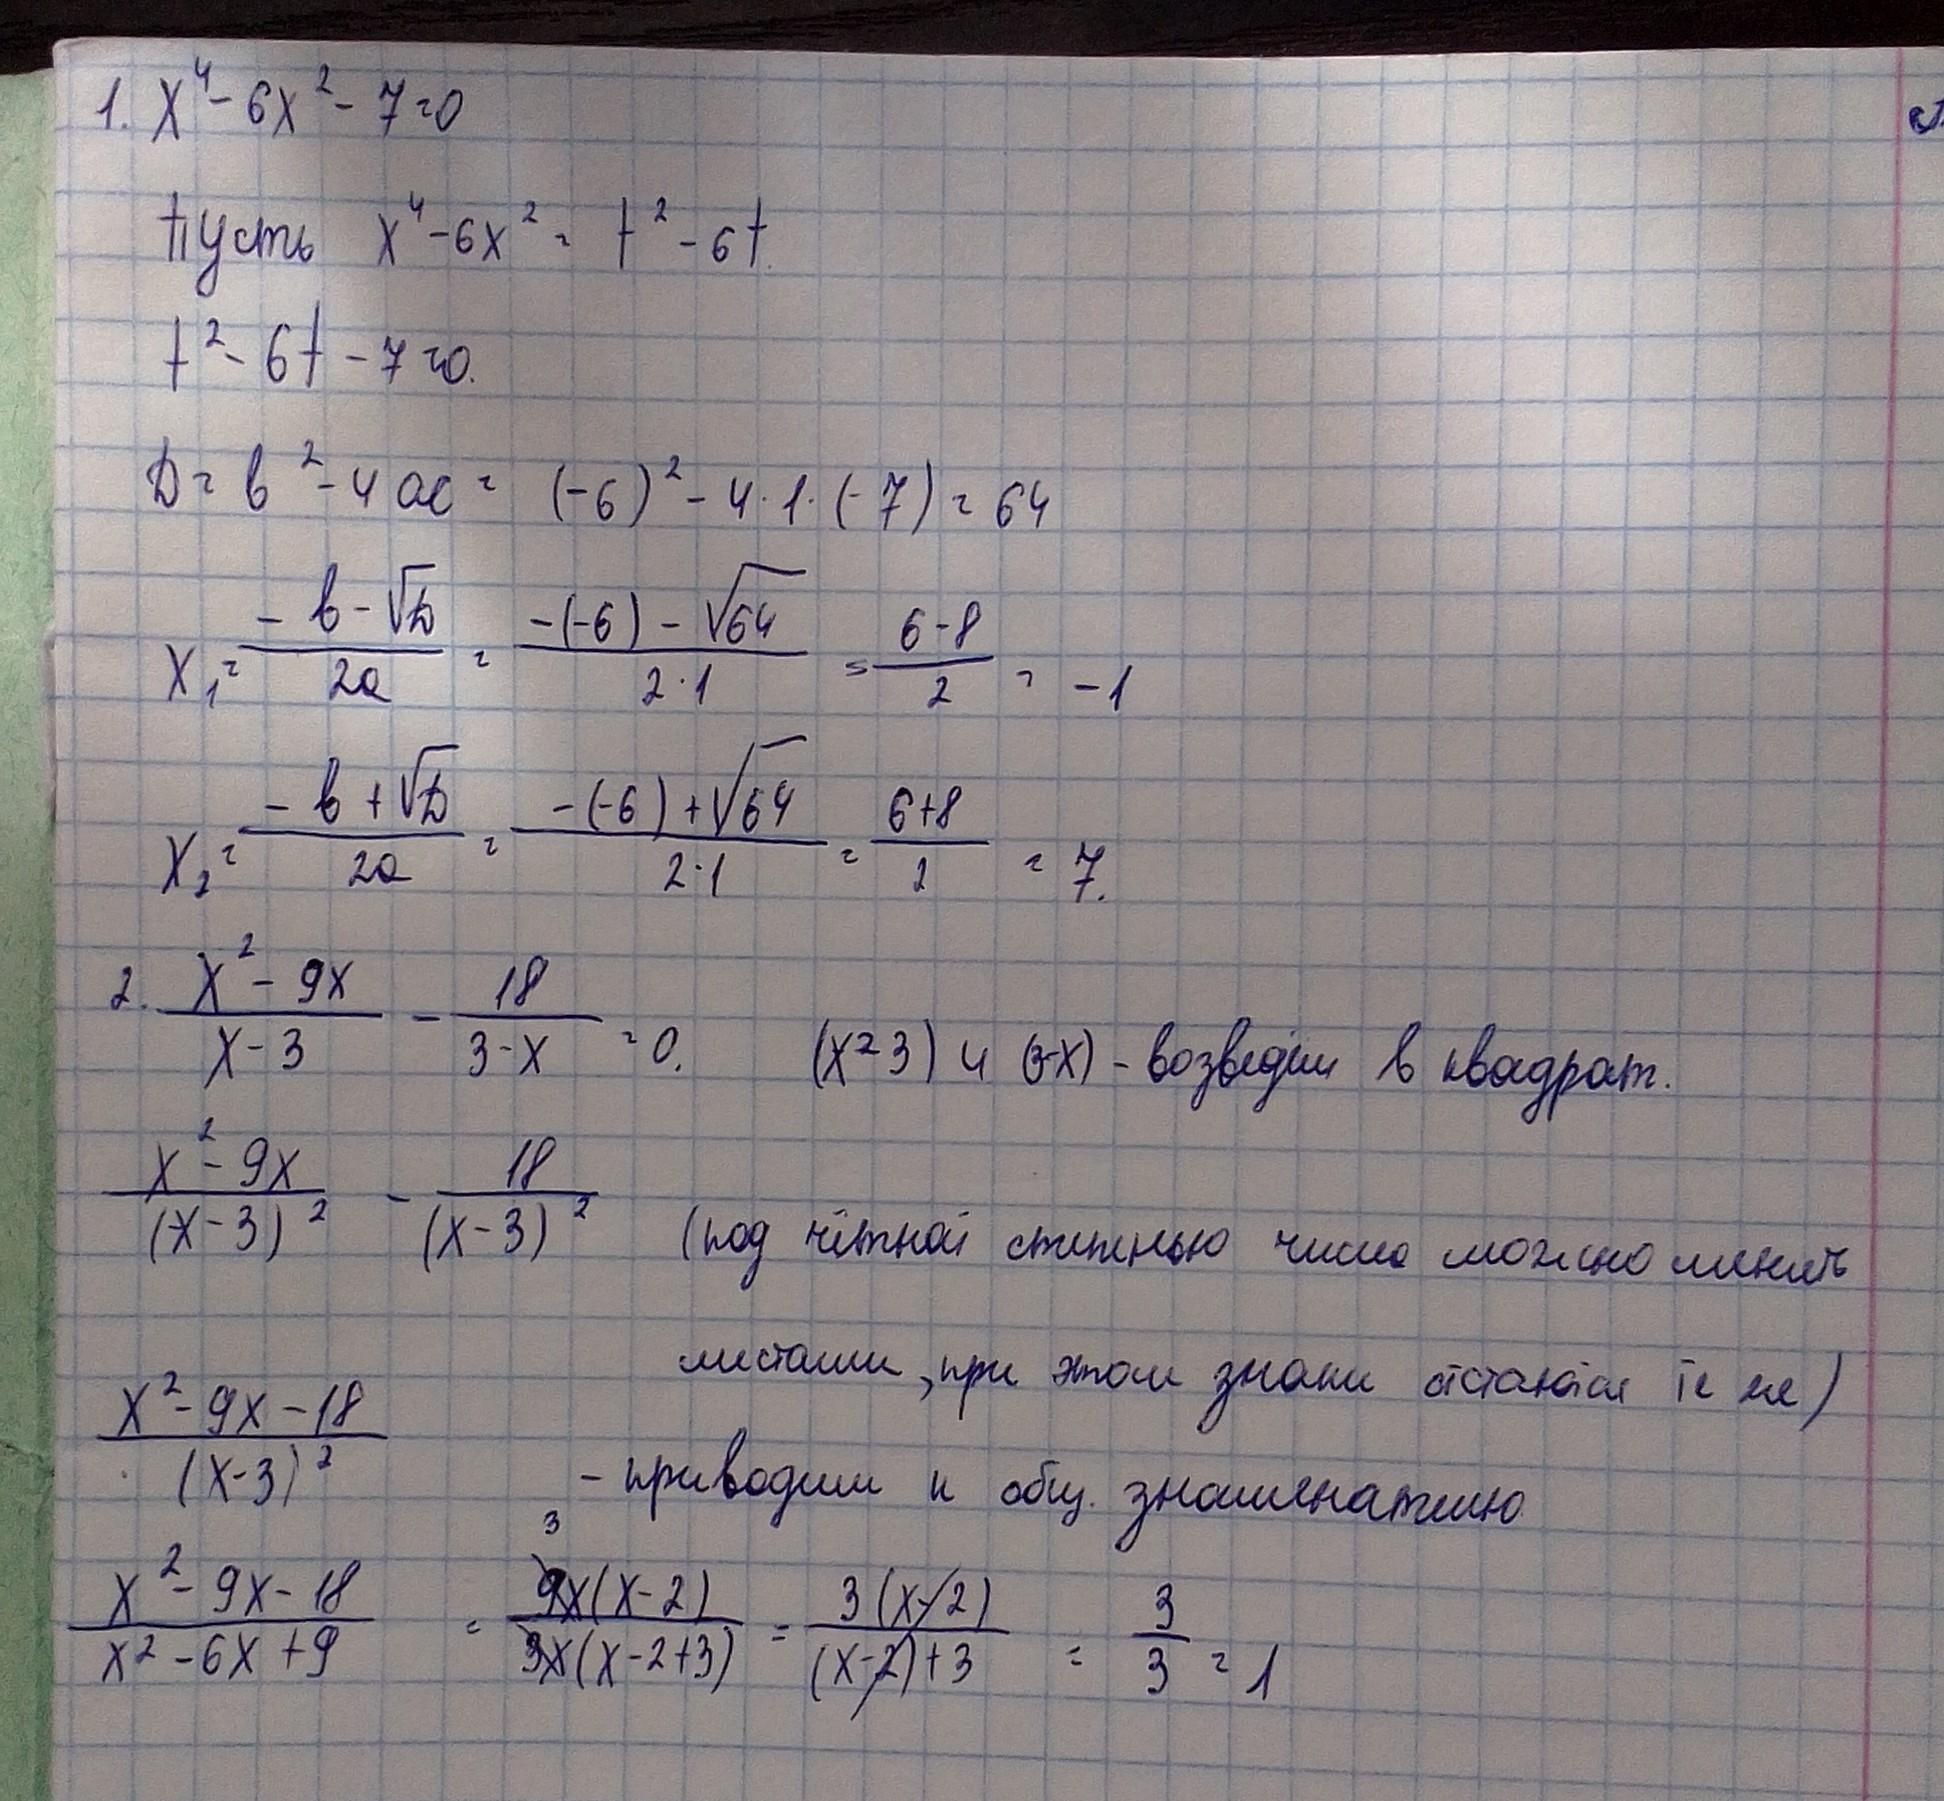 1. x⁴ - 6x² - 7 = 0
Пусть x⁴ - 6x² = t² - 6t.
t² - 6t - 7 = 0.
D = b² - 4ac = (-6)² - 4 · 1 · (-7) = 64
x₁ = (-b - √D)/(2a) = (-(-6) - √64)/(2 · 1) = (6 - 8)/2 = -1
x₂ = (-b + √D)/(2a) = (-(-6) + √64)/(2 · 1) = (6 + 8)/2 = 7.
2. (x² - 9x)/(x - 3) - 18/(3 - x) = 0. (x - 3) и (3-x) - возведём в квадрат.
(x² - 9x)/(x - 3)² - 18/(x - 3)² (под чётной степенью число можно менять
местами, при этом знаки остаются те же)
(x² - 9x - 18)/(x - 3)² - приводим к общ. знаменателю
3
(x² - 9x - 18)/(x² - 6x + 9) = 9x(x - 2)/3x(x - 2 + 3) = 3(x - 2)/(x - 2) + 3 = 3/3 = 1